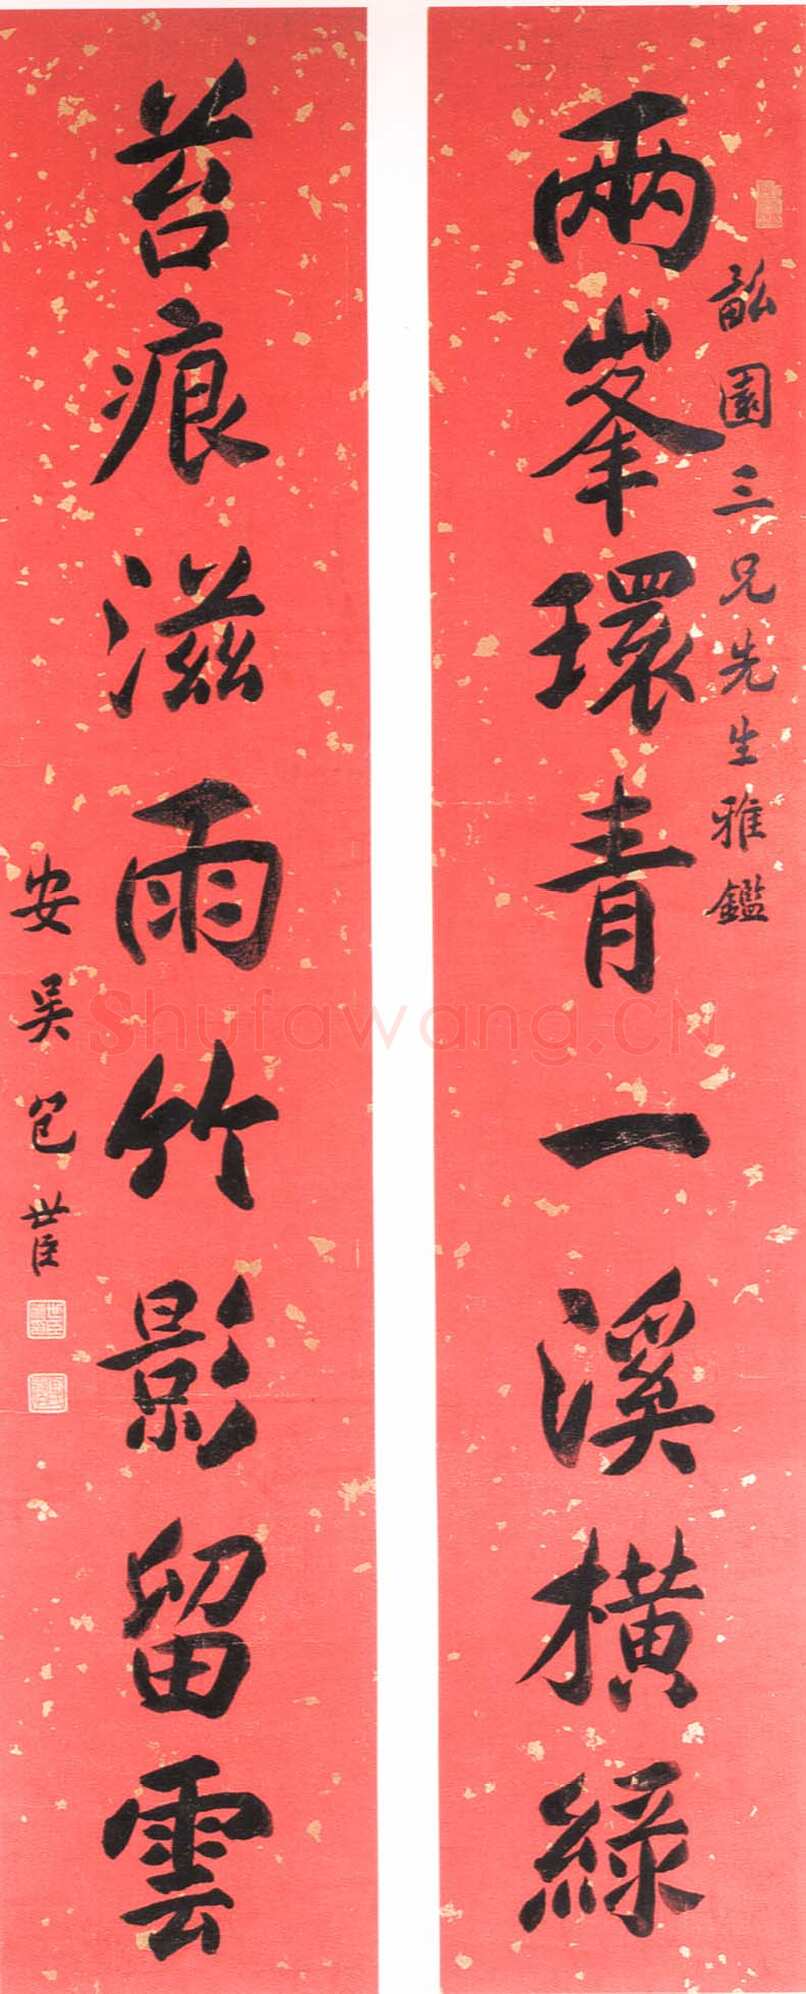 兩峯環青一溪橫綠
園三兄先生雅鑑
苔痕滋雨竹影留雲
安吳包世臣
Shufawang.CN